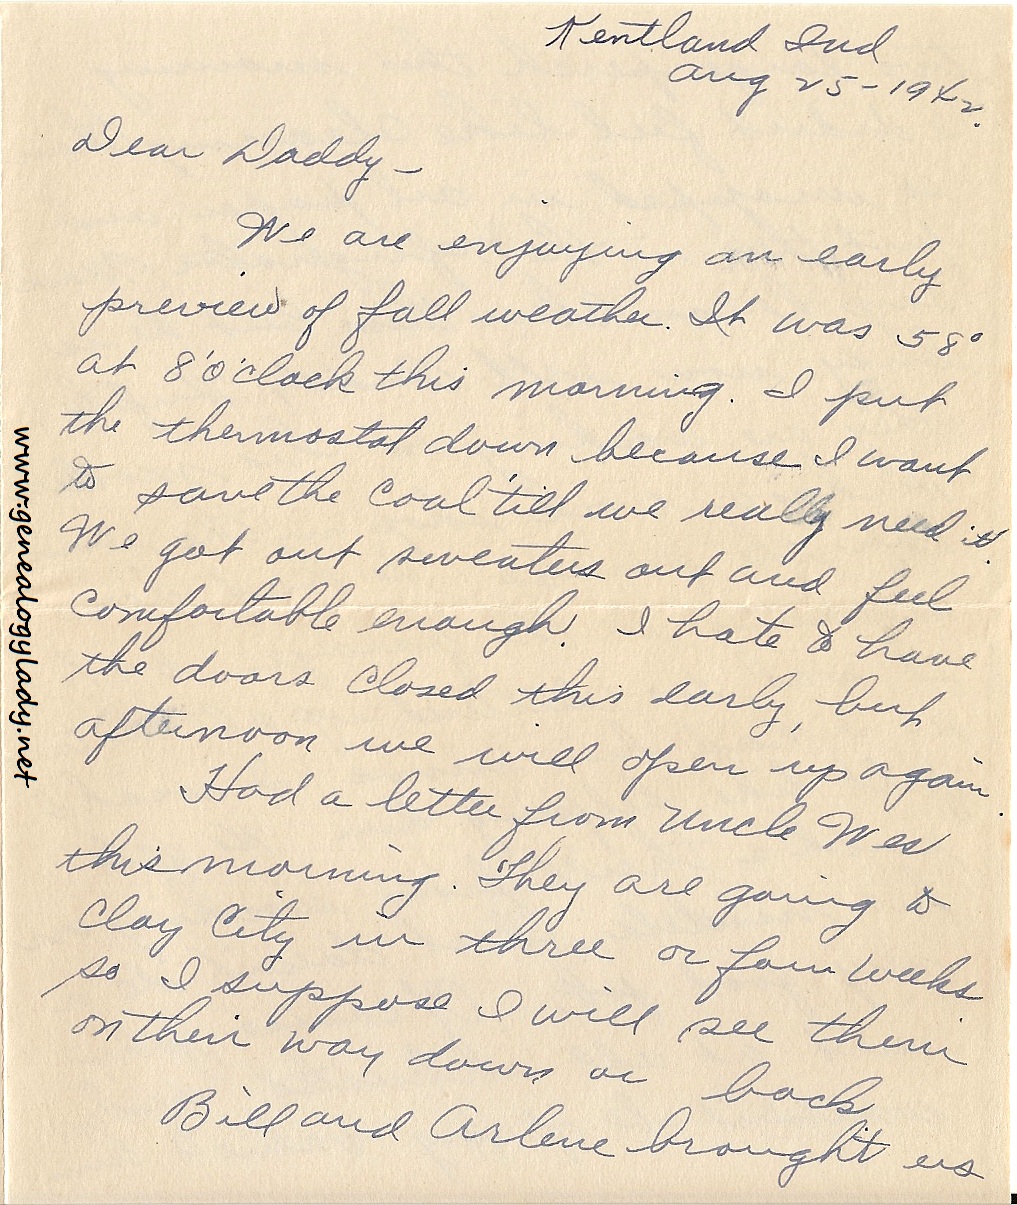 Kentland Ind
Aug 25-1942.
Dear Daddy-
We are enjoying an early
preview of fall weather. It was 58°
at 8'o'clock this morning. I put
the thermostat down because I want
to save the coal 'till we really need it.
We got out sweaters out and feel
comfortable enough. I hate to have
the doors closed this early, but
afternoon we will open up again.
Had a letter from Uncle Wes
this morning. They are going to
Clay City in three or four weeks
so I suppose I will see them
on their way down or back.
Bill and Arlene brought us
www.genealogylady.net